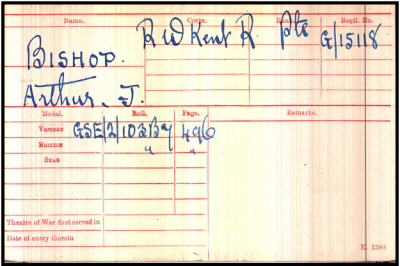 Name. Corps. Rank. Regtl. No.
BISHOP. R W Kent R. Pte G/15118
Arthur. J.
Medal. Roll. Page. Remarks.
VICTORY GSE/2/103B7 496
BRITISH " "
STAR
Theatre of War first served in
Date of entry therein
K. 1380